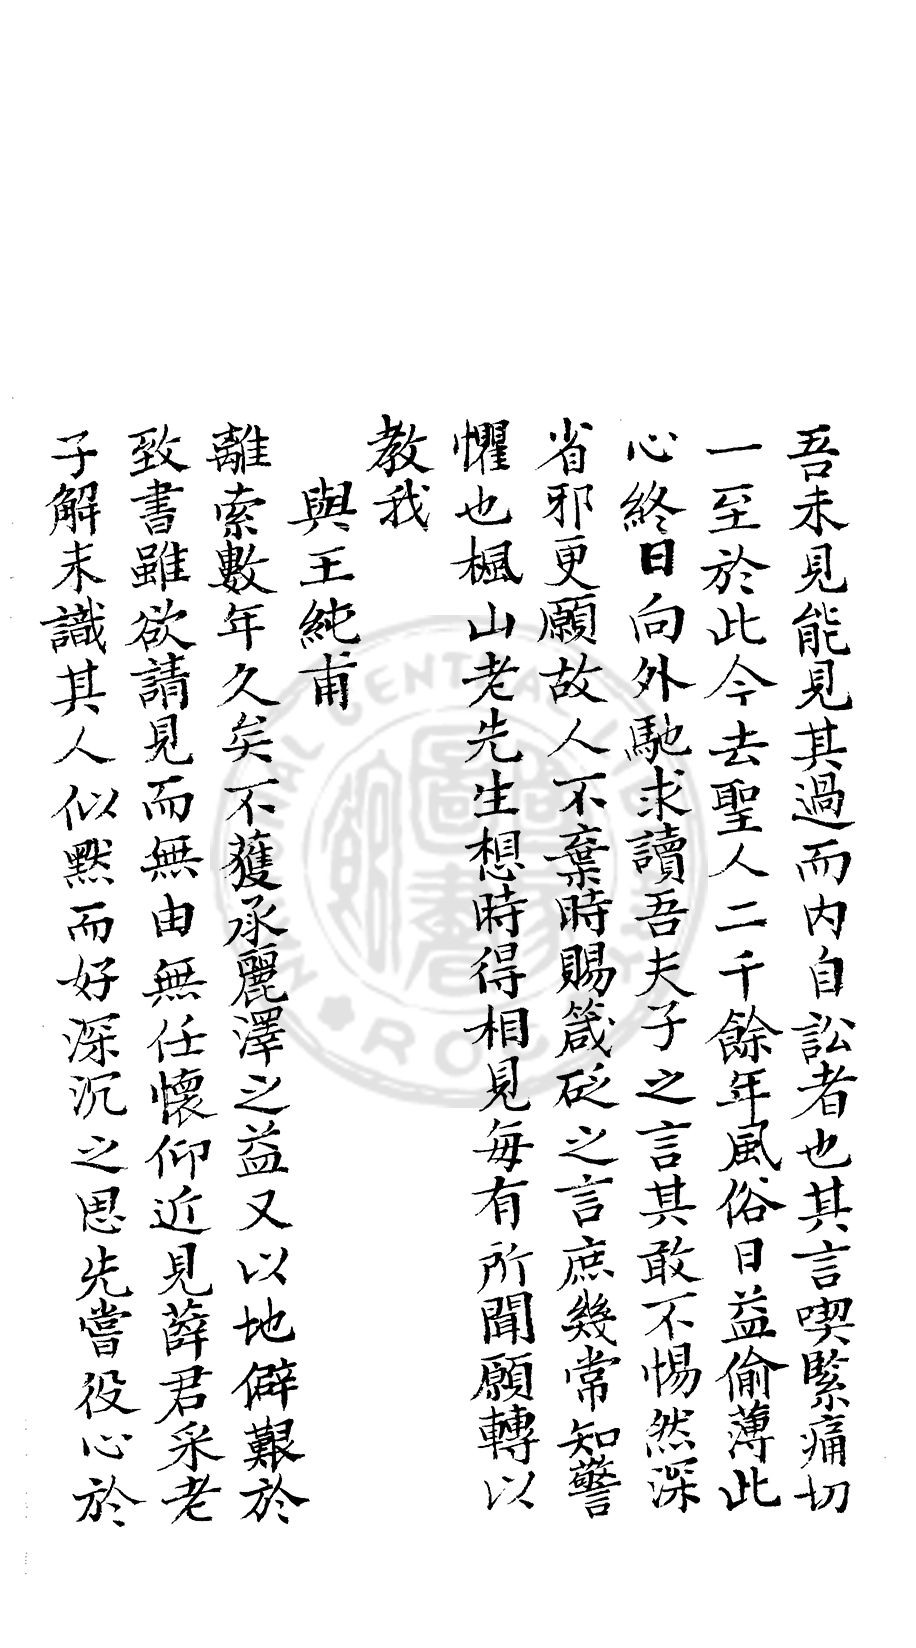 吾未見能見其過而内自訟者也其言喫緊痛切
一至於此今去聖人二千餘年風俗日益偷薄此
心終日向外馳求讀吾夫子之言其敢不惕然深
省邪更願故人不棄時賜箴砭之言庶幾常知警
懼也楓山老先生想時得相見每有所聞願轉以
教我
與王純甫
離索數年久矣不獲承麗澤之益又以地僻艱於
致書雖欲請見而無由無任懷仰近見薛君采老
子解未識其人似默而好深沉之思先嘗役心於
NATIONAL CENTRAL LIBRARY
R.O.C.
國家圖書館